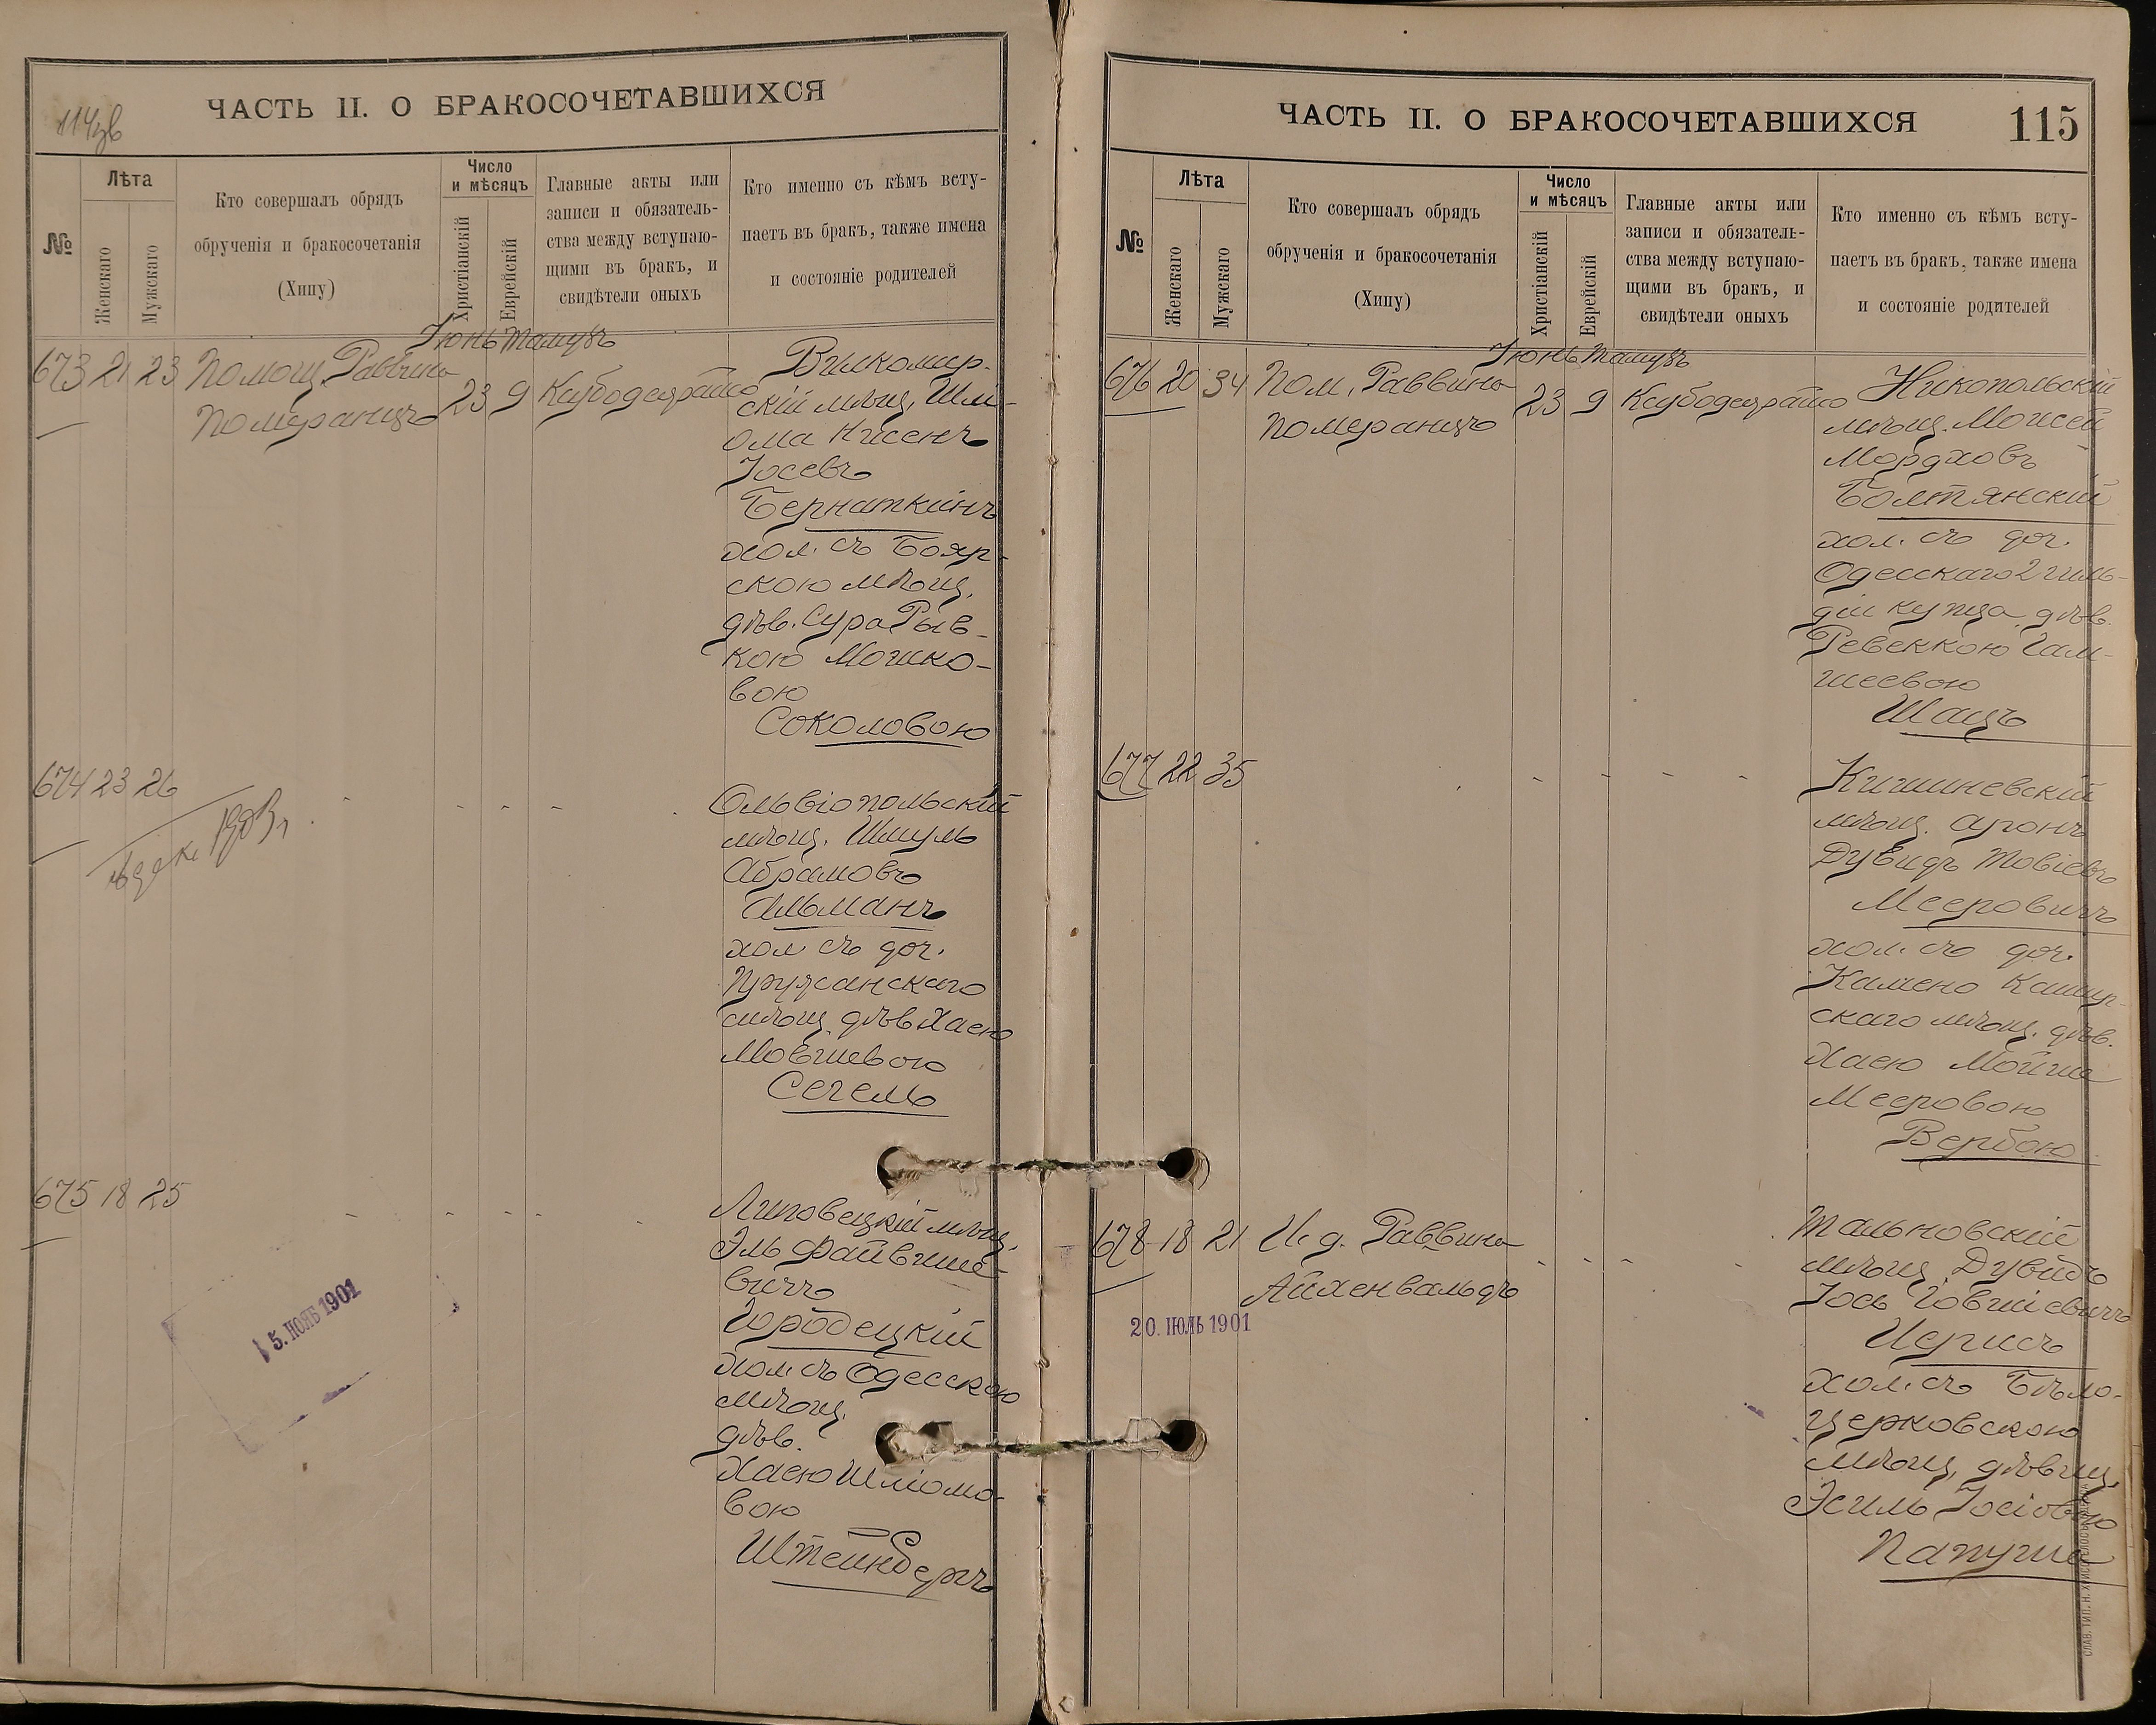 114зв
ЧАСТЬ II. О БРАКОСОЧЕТАВШИХСЯ
№
Лѣта
Женскаго
Мужскаго
Кто совершалъ обрядъ
обрученія и бракосочетанія
(Хипу)
Число
и мѣсяцъ
Христіанскій
Еврейскій
Главные акты или
записи и обязатель-
ства между вступаю-
щими въ бракъ, и
свидѣтели оныхъ
Кто именно съ кѣмъ всту-
паетъ въ бракъ, также имена
и состояніе родителей
Іюнь Тамузъ
673 21 23 Помощ. Раввина
Померанцъ
23 9
Вилкомир-
скій мѣщ. Шлі-
ома Нисенъ
Іосевъ
Бернаткинъ
хол. съ Бояр-
скою мѣщ.
дѣв. Сура Рыв-
кою Мошко-
вою
Соколовою
674 23 26
1903 г.
Ольвіопольскій
мѣщ. Шмуль
Абрамовъ
Альманъ
хол съ доч.
Пружанскаго
мѣщ. дѣв Хаею
Мовшевою
Сегель
675 18 25
Липовецкій мѣщ.
Эль Файвише-
вичъ
Городецкій
хол. съ Одесскою
мѣщ.
дѣв.
Хаею Шліомо-
вою
Штейнбергъ
15. НОЯБ 1901
ЧАСТЬ II. О БРАКОСОЧЕТАВШИХСЯ
115
№
Лѣта
Женскаго
Мужскаго
Кто совершалъ обрядъ
обрученія и бракосочетанія
(Хипу)
Число
и мѣсяцъ
Христіанскій
Еврейскій
Главные акты или
записи и обязатель-
ства между вступаю-
щими въ бракъ, и
свидѣтели оныхъ
Кто именно съ кѣмъ всту-
паетъ въ бракъ, также имена
и состояніе родителей
Іюнь Тамузъ
676 20 34 Пом. Раввина
Померанцъ
23 9
Никопольскій
мѣщ. Моисей
Мордховъ
Болтянскій
хол. съ доч.
Одесскаго 2 гиль-
діи купца дѣв.
Ревеккою Гам-
шеевою
Шацъ
677 22 35
Кишиневскій
мѣщ. Аронъ
Дувидъ Товіевъ
Мееровичъ
хол. съ доч.
Камено Кашир-
скаго мѣщ. дѣв.
Хаею Мойше
Мееровою
Вербою
678 18 21 И. д. Раввина
Айхенвальдъ
20. ІЮЛЬ 1901
Тальновскій
мѣщ. Дувидъ
Іось Говшіевичъ
Церисъ
хол. съ Бѣло-
церковскою
мѣщ. дѣвиц.
Эсиль Іосіовою
Папуша